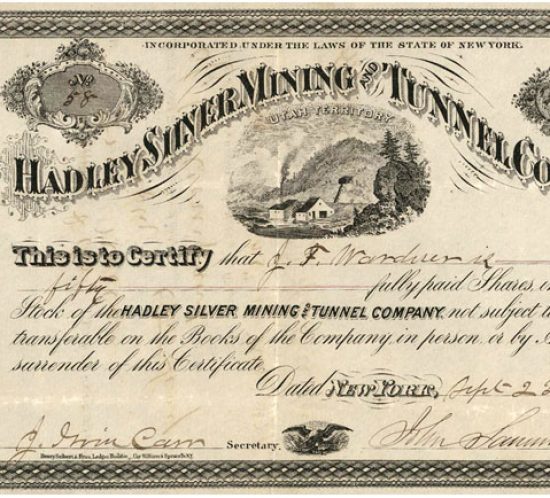 INCORPORATED UNDER THE LAWS OF THE STATE OF NEW YORK.
No
58
HADLEY SILVER MINING AND TUNNEL CO
UTAH TERRITORY
This is to Certify that J. F. Wardner is
fifty fully paid Shares, in
Stock of the HADLEY SILVER MINING AND TUNNEL COMPANY, not subject t
transferable on the Books of the Company, in person, or by
surrender of this Certificate.
Dated NEW YORK, Sept 2
J. Irvin Carr Secretary. John